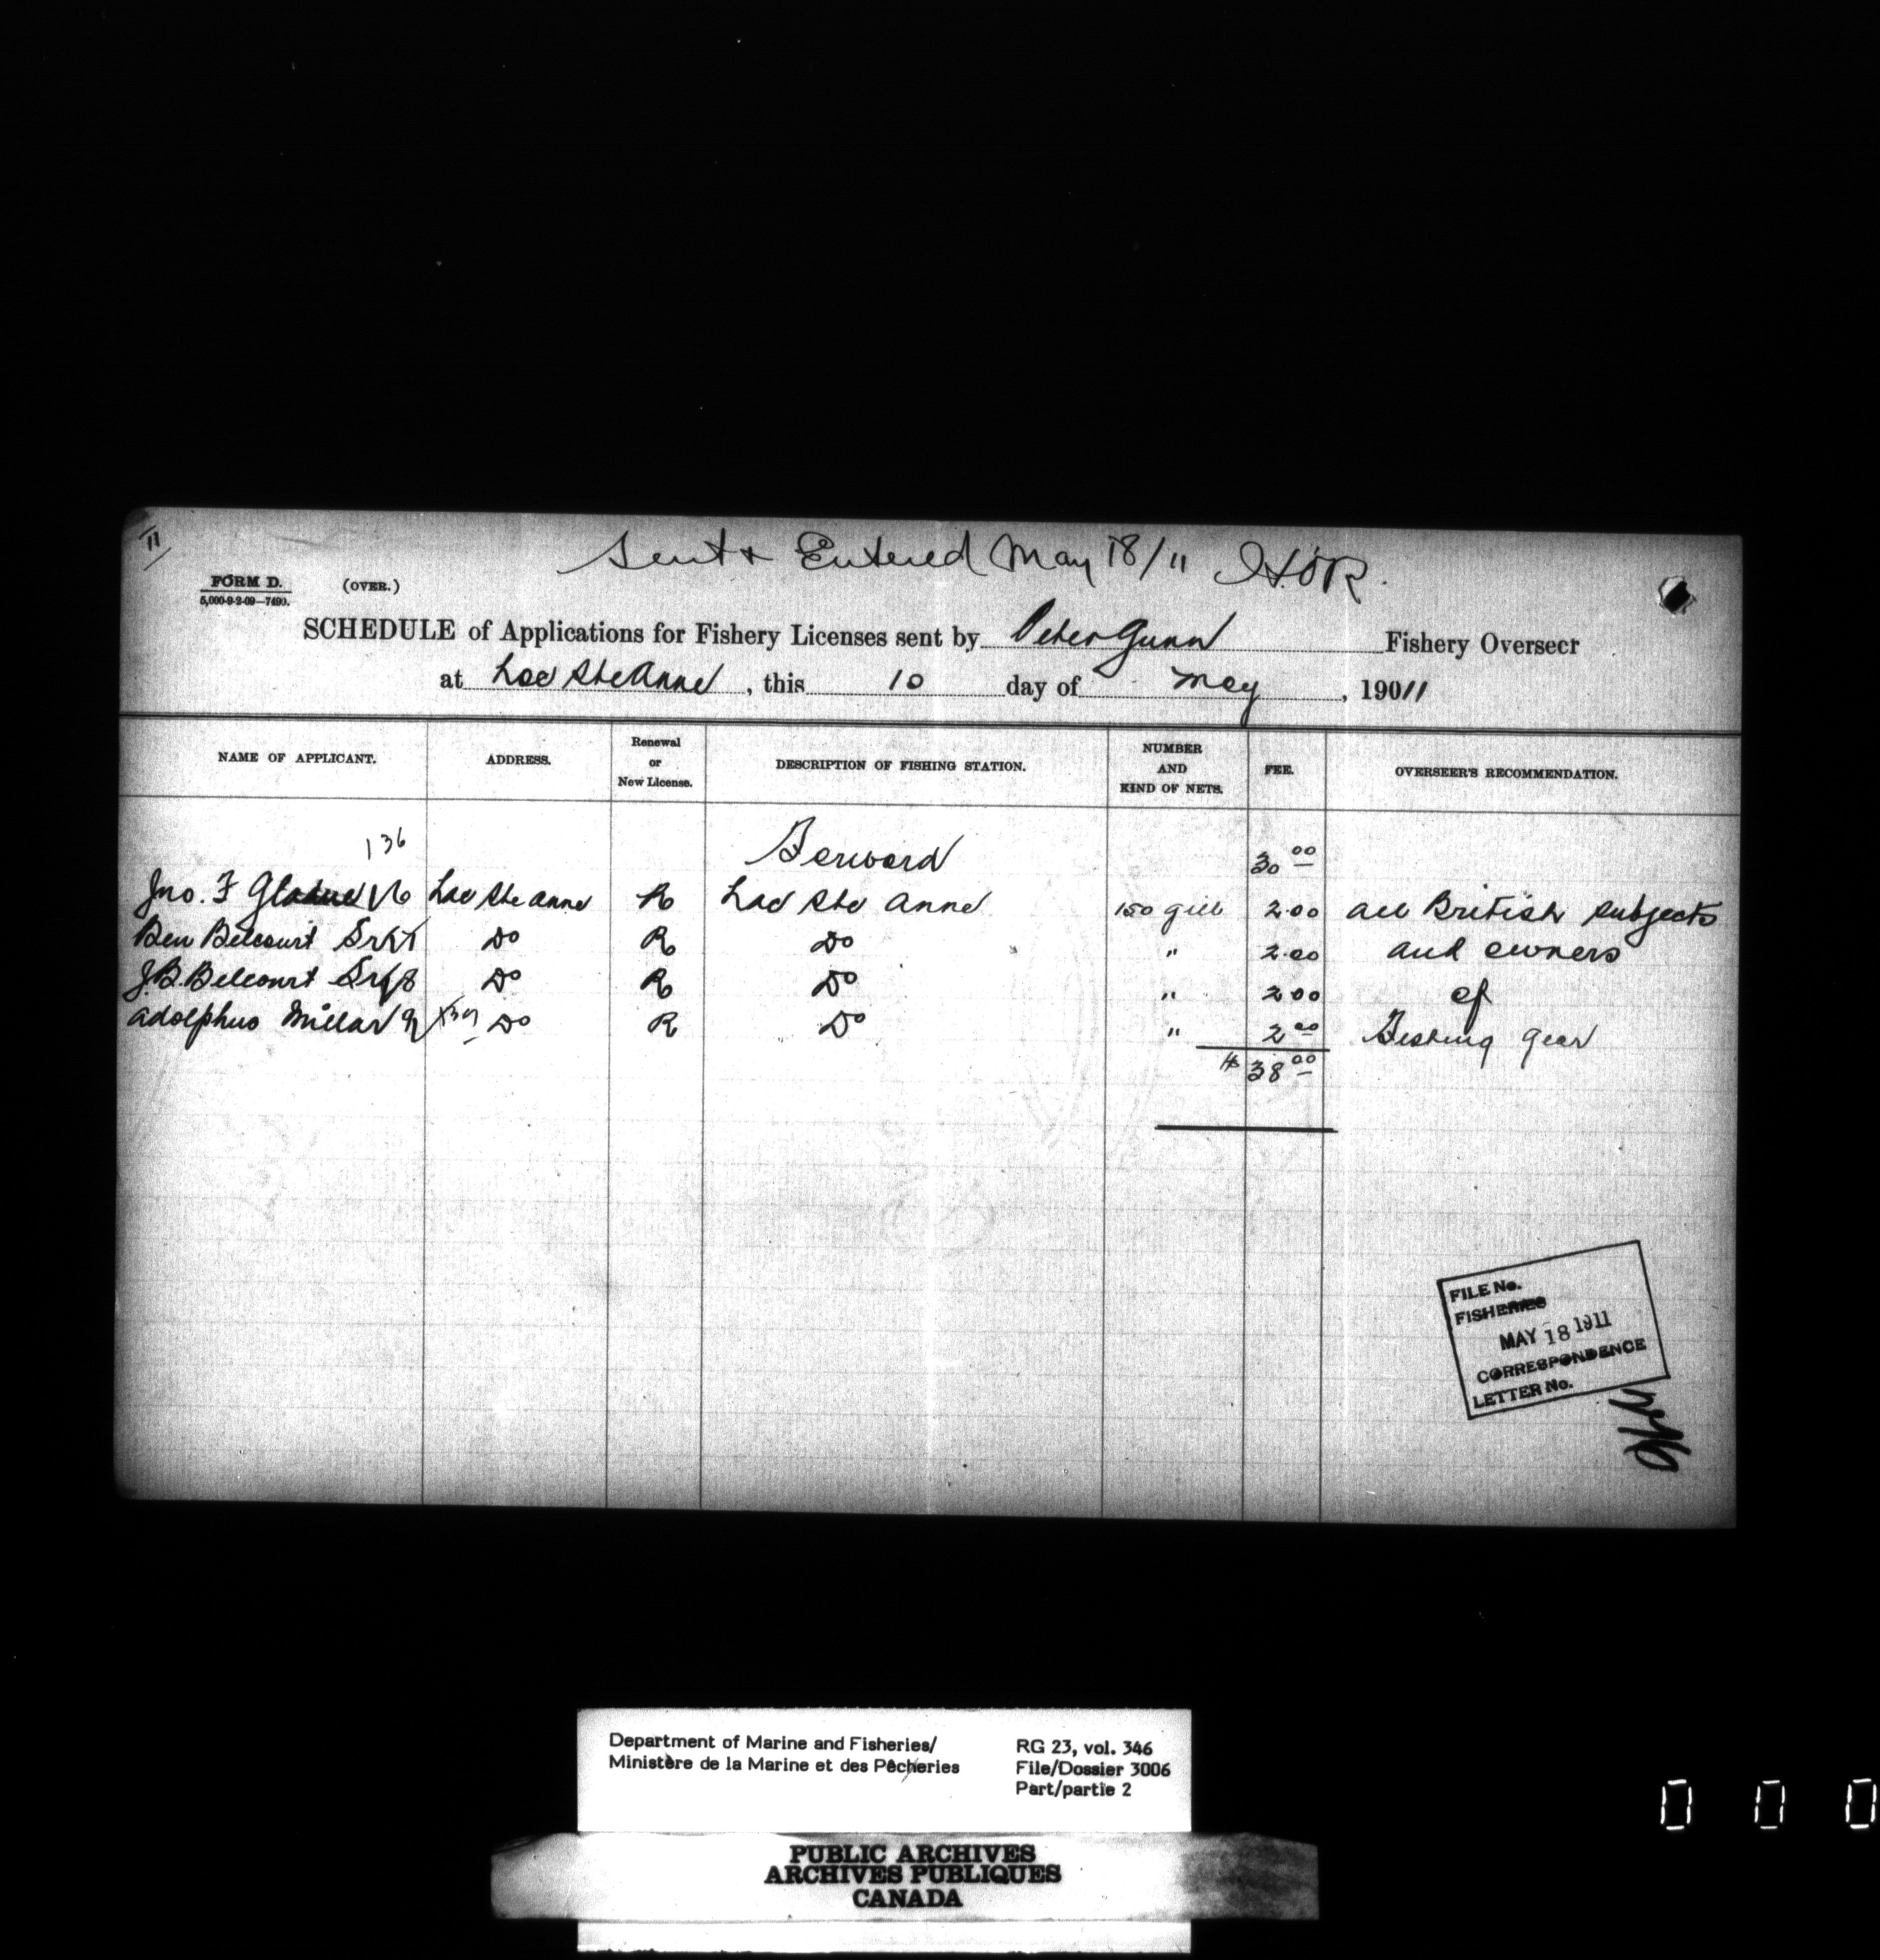 11
Sent & Entered May 18/11
FORM D.
5,000-9-2-09—7490.
(OVER.)
SCHEDULE of Applications for Fishery Licenses sent by Peter Gunn Fishery Overseer
at Lac Ste Anne, this 10 day of May, 19011
NAME OF APPLICANT. ADDRESS. Renewal or New License. DESCRIPTION OF FISHING STATION. NUMBER AND KIND OF NETS. FEE. OVERSEER'S RECOMMENDATION.
136 Forward 30 00
Jno. F Gladue Lac Ste Anne R Lac Ste Anne 150 gill 2.00 all British subjects
Ben Belcourt Sr Do R Do " 2.00 and owners
J.B. Belcourt Sr Do R Do " 2 00 of
Adolphus Millar 139 Do R Do " 2 00 Fishing gear
$ 38 00
FILE No.
FISHERIES
MAY 18 1911
CORRESPONDENCE
LETTER No.
Department of Marine and Fisheries/
Ministère de la Marine et des Pêcheries
RG 23, vol. 346
File/Dossier 3006
Part/partie 2
PUBLIC ARCHIVES
ARCHIVES PUBLIQUES
CANADA
0 0 0